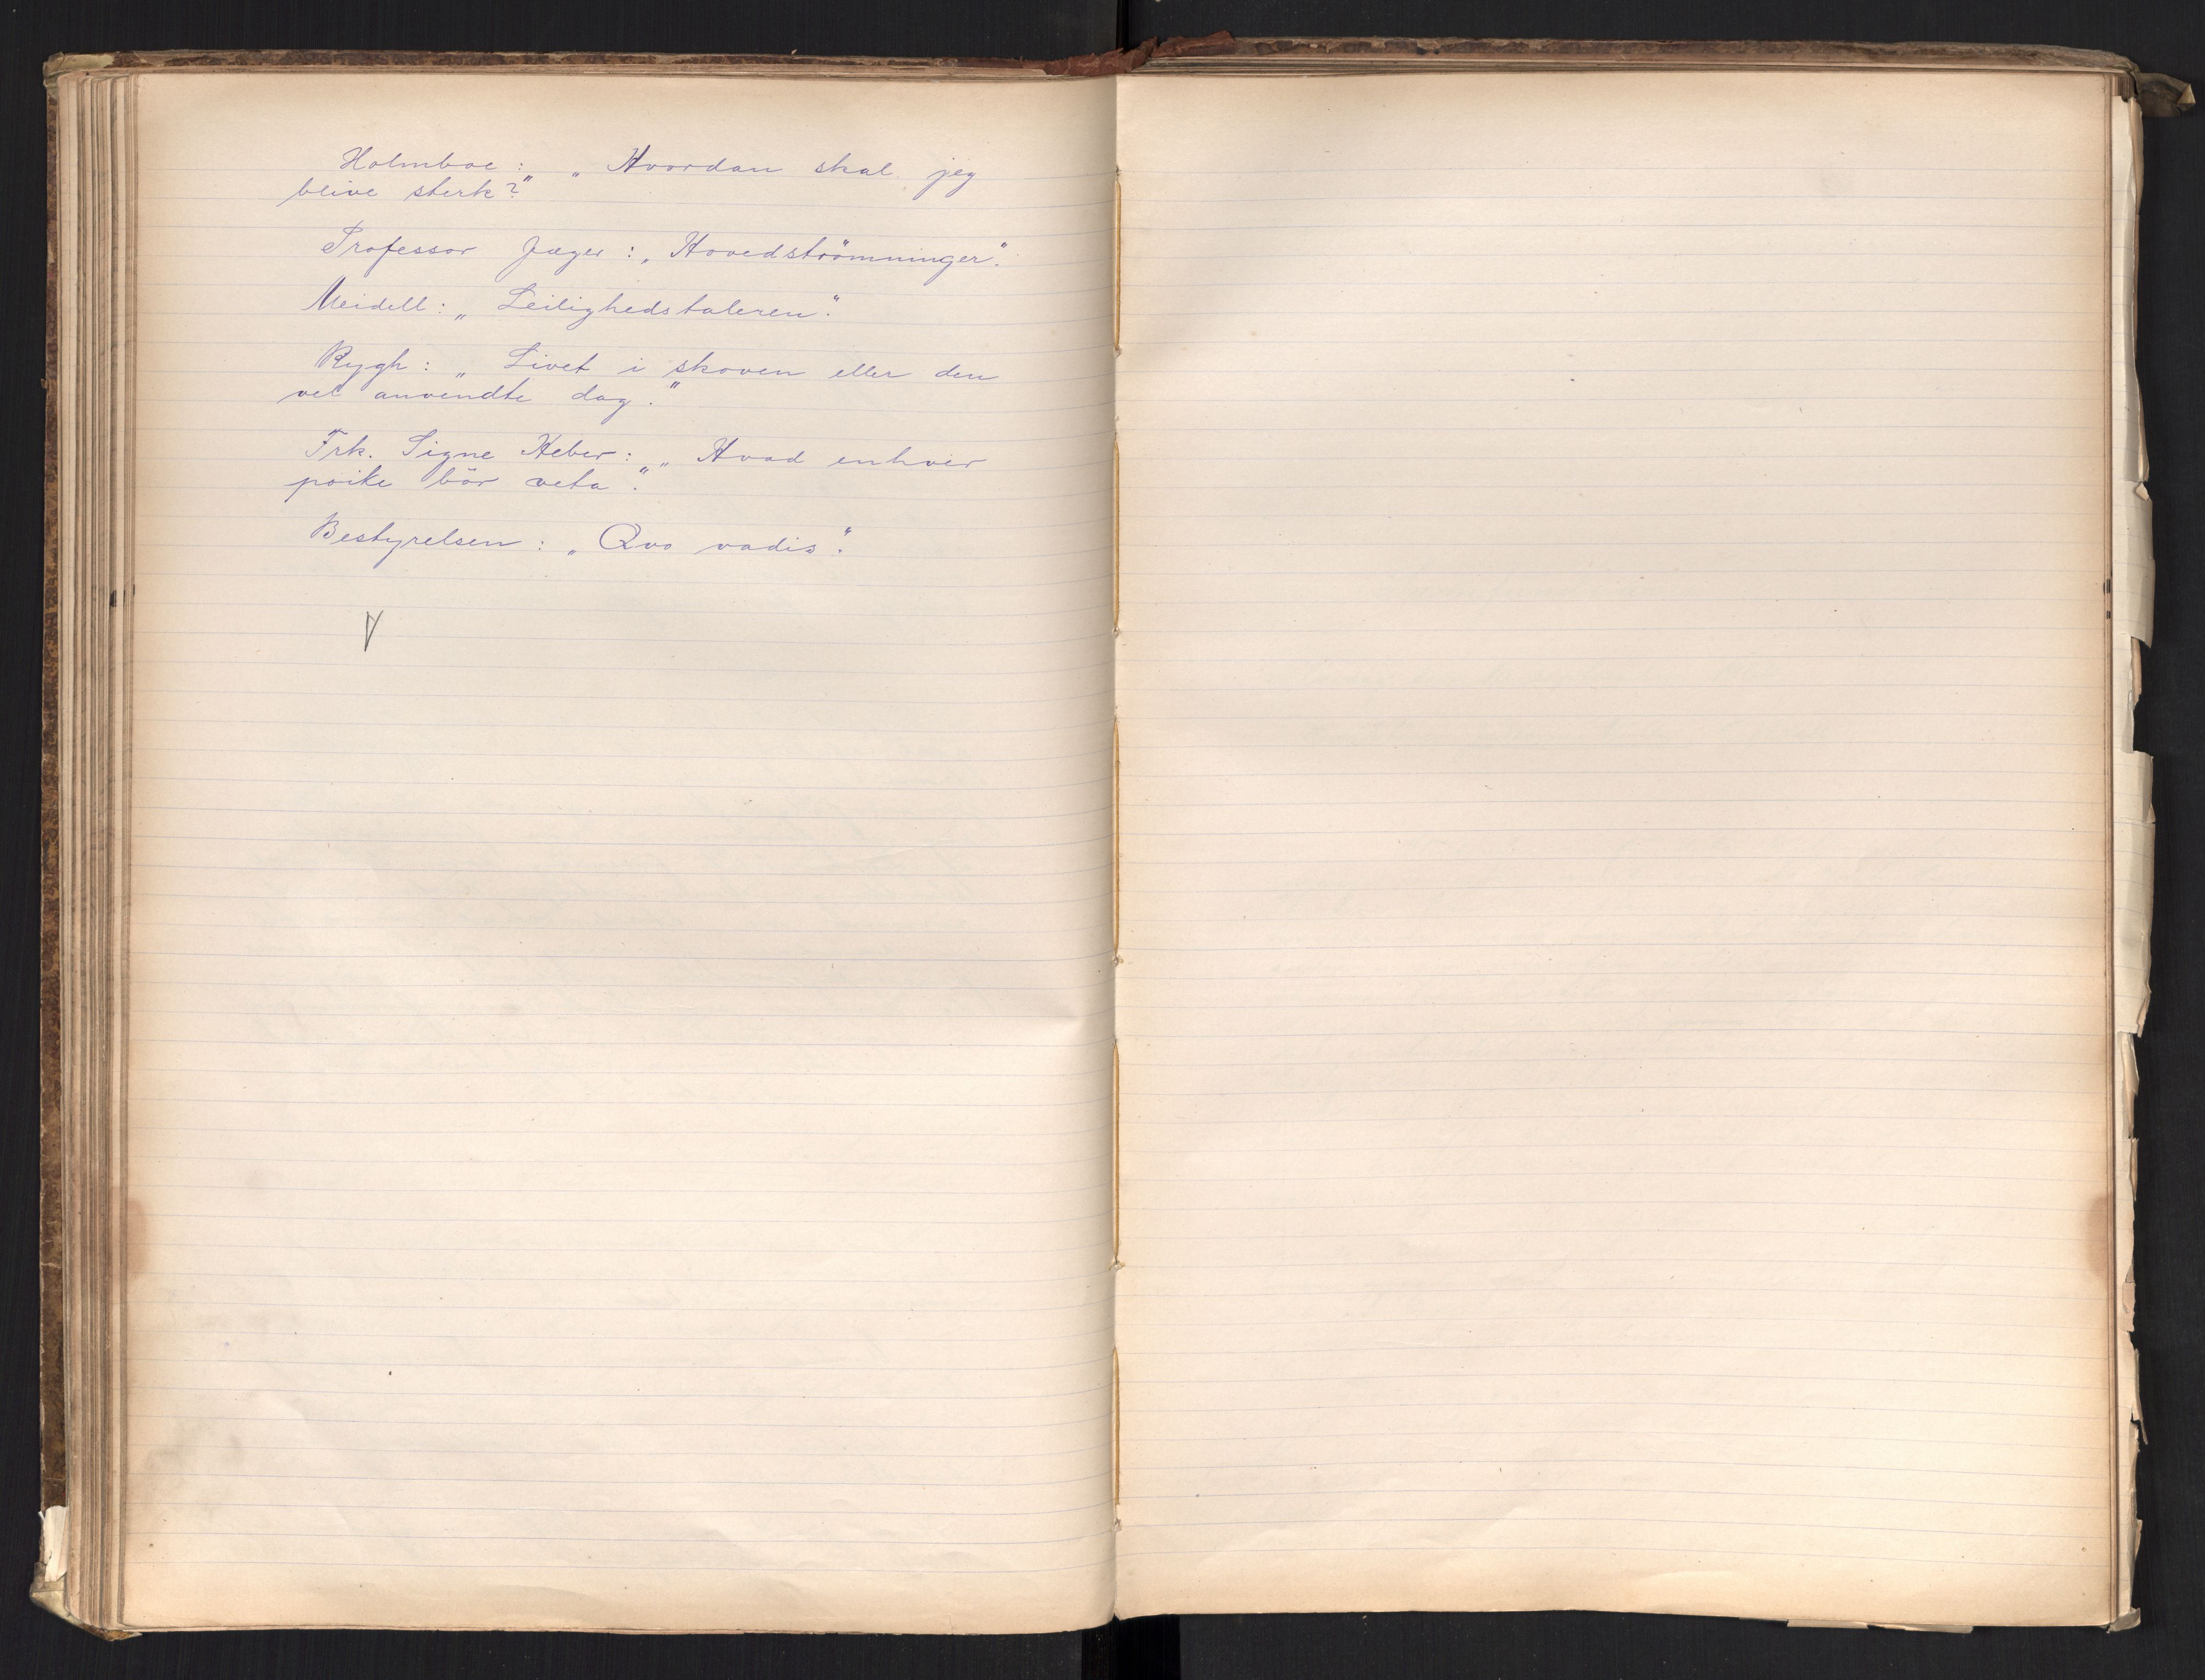 Holmboe: „Hvordan skal jeg
blive sterk?"
Professor Jæger: „Hovedströmninger".
Meidell: „Leilighedstaleren".
Rygh: „Livet i skoven eller den
vel anvendte dag."
Frk. Signe Heber: „Hvad enhver
poike bör veta".
Bestyrelsen: „Qvo vadis".